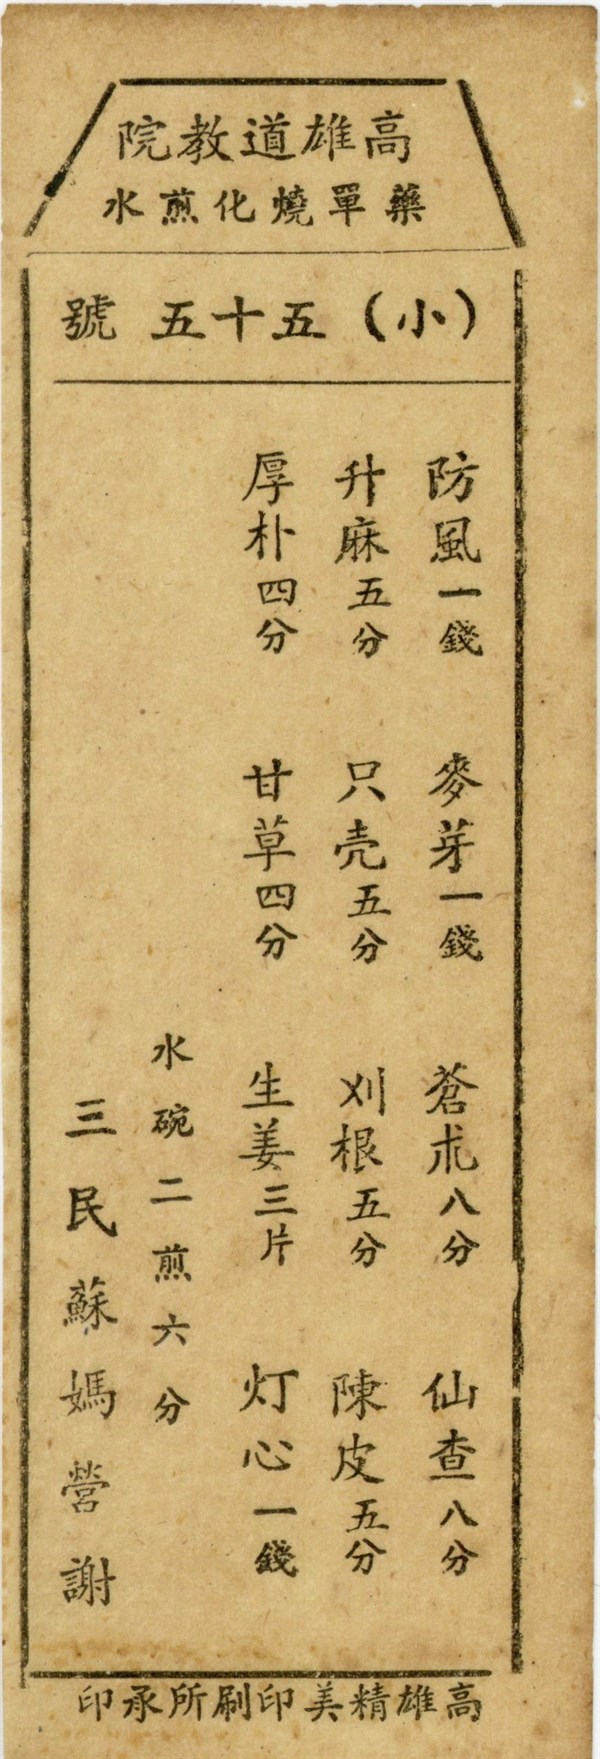 高雄道教院
藥單燒化煎水
(小)五十五號
防風一錢 麥芽一錢 蒼朮八分 仙查八分
升麻五分 只壳五分 刈根五分 陳皮五分
厚朴四分 甘草四分 生姜三片 灯心一錢
水碗二煎六分
三民蘇媽營謝
高雄精美印刷所承印